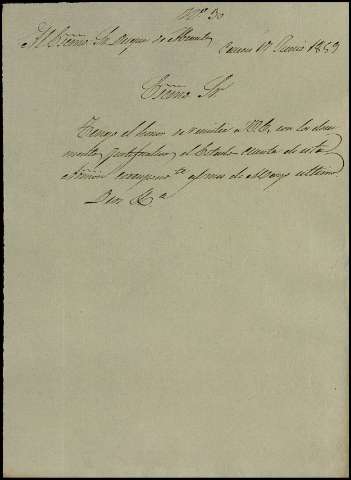 Nº 30
Al Excmo. Sr. Duque de
17 Junio 1859
Excmo Sr
Tengo el honor de remitir a V.E. con los docu
mentos justificativos el Estado Cuenta de esta
correspondte al mes de Mayo ultimo
Dios &a